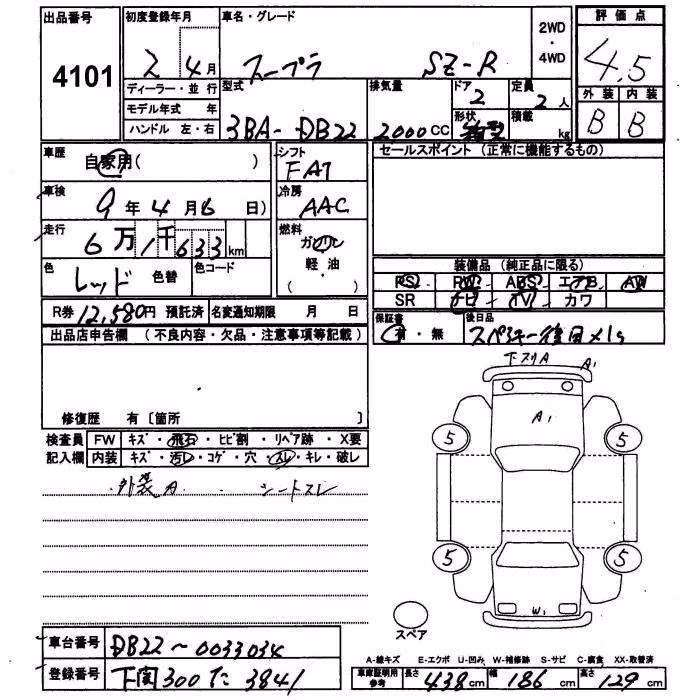 出品番号 4101
初度登録年月 2 4月
車名・グレード スープラ SZ-R
2WD・4WD
評価点 4.5
外装 B 内装 B
ディーラー・並行
モデル年式 年
ハンドル 左・右
型式 3BA-DB22
排気量 2000CC
ドア 2
形状 箱型
定員 2人
積載 kg
車歴 自家用( )
シフト FAT
セールスポイント (正常に機能するもの)
車検 9年4月6日)
冷房 AAC
走行 6万1千633km
燃料 ガソリン 軽・油 ( )
色 レッド 色替 色コード
装備品 (純正品に限る)
PS PW ABS エアB AW
SR ナビ TV カワ
R券 12,580円 預託済 名変通知期限 月 日
保証書 有・無
後日品 スペアキー 後日メール
出品店申告欄 (不良内容・欠品・注意事項等記載)
修復歴 有〔箇所 〕
検査員記入欄
FW キズ・飛石・ヒビ割・リペア跡・X要
内装 キズ・汚レ・コゲ・穴・スレ・キレ・破レ
・外装A ・シートスレ
下スリA A1
A1
5 5
5 5
W1
スペア
車台番号 DB22~0033034
登録番号 下関300た3841
A-線キズ E-エクボ U-凹み W-補修跡 S-サビ C-腐食 XX-取替済
車庫証明用参考 長さ 438cm 幅 186cm 高さ 129cm